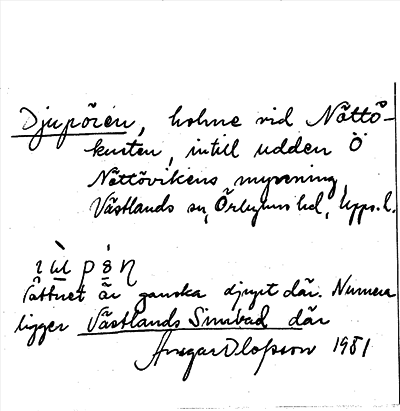 Djupören, holme vid Nöttö-
kusten, intill udden Ö
Nöttövikens mynning,
Västlands sn, Örbyhus hd, Upps. l.
Vattnet är ganska djupt där. Numera
ligger Västlands Simbad där
Ansgar Olofsson 1981